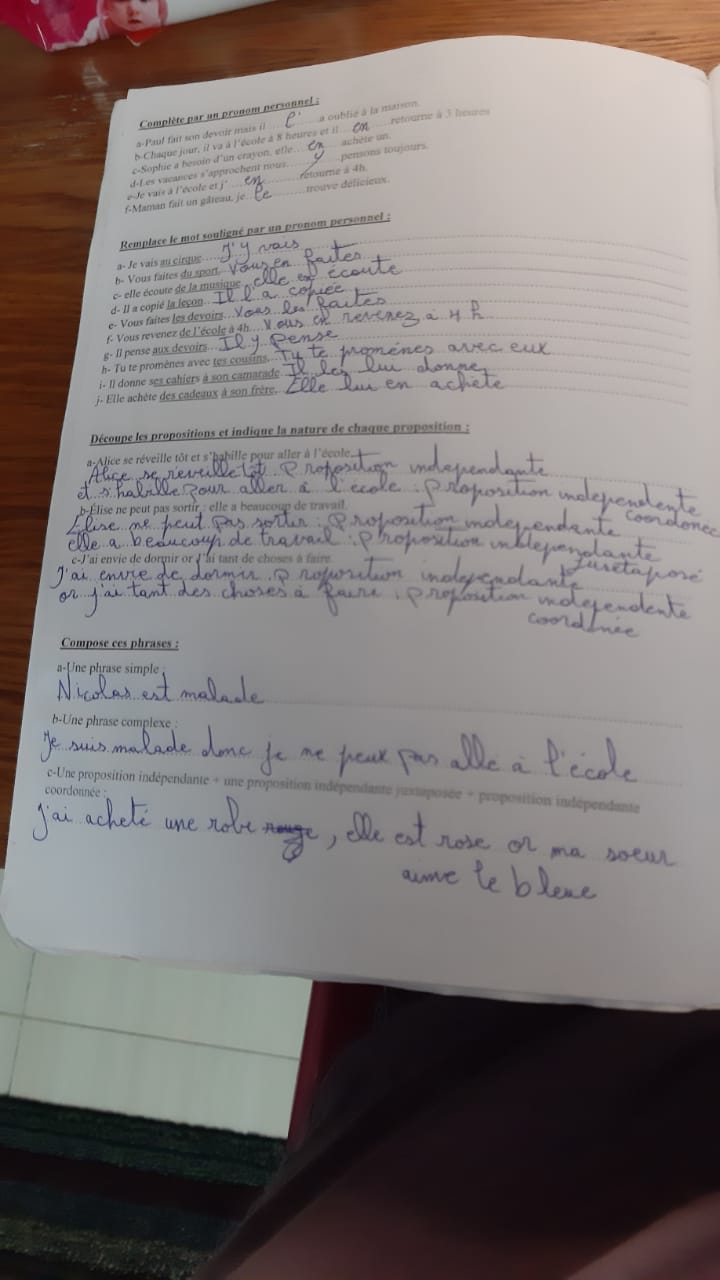 Complète par un pronom personnel :
a-Paul fait son devoir mais il .... l' .... a oublié à la maison.
b-Chaque jour, il va à l'école à 8 heures et il .... en .... retourne à 3 heures
c-Sophie a besoin d'un crayon, elle .... en .... achète un.
d-Les vacances s'approchent nous .... y .... pensons toujours.
e-Je vais à l'école et j' .... en .... retourne à 4h.
f-Maman fait un gâteau, je .... le .... trouve délicieux.
Remplace le mot souligné par un pronom personnel :
a- Je vais au cirque.... J'y vais
b- Vous faites du sport. Vous en faites
c- elle écoute de la musique. elle en écoute
d- Il a copié la leçon.... Il l'a copiée
e- Vous faites les devoirs... Vous les faites
f- Vous revenez de l'école à 4h... Vous en revenez à 4 h
g- Il pense aux devoirs... Il y pense
h- Tu te promènes avec tes cousins. Tu te promènes avec eux
i- Il donne ses cahiers à son camarade. Il les lui donne
j- Elle achète des cadeaux à son frère. Elle lui en achète
Découpe les propositions et indique la nature de chaque proposition :
a-Alice se réveille tôt et s'habille pour aller à l'école.
Alice se réveille tôt : Proposition independante
et s'habille pour aller à l'école : Proposition independente
coordonée
b-Élise ne peut pas sortir : elle a beaucoup de travail.
Élise ne peut pas sortir : Proposition independante
elle a beaucoup de travail : Proposition independante
juxtaposé
c-J'ai envie de dormir or j'ai tant de choses à faire.
J'ai envie de dormir : Proposition independante
or j'ai tant des choses à faire : Proposition independente
coordinée
Compose ces phrases :
a-Une phrase simple :
Nicolas est malade
b-Une phrase complexe :
Je suis malade donc je ne peux pas alle à l'école
c-Une proposition indépendante + une proposition indépendante juxtaposée + proposition indépendante
coordonnée :
J'ai acheté une robe , elle est rose or ma soeur
aime le bleue